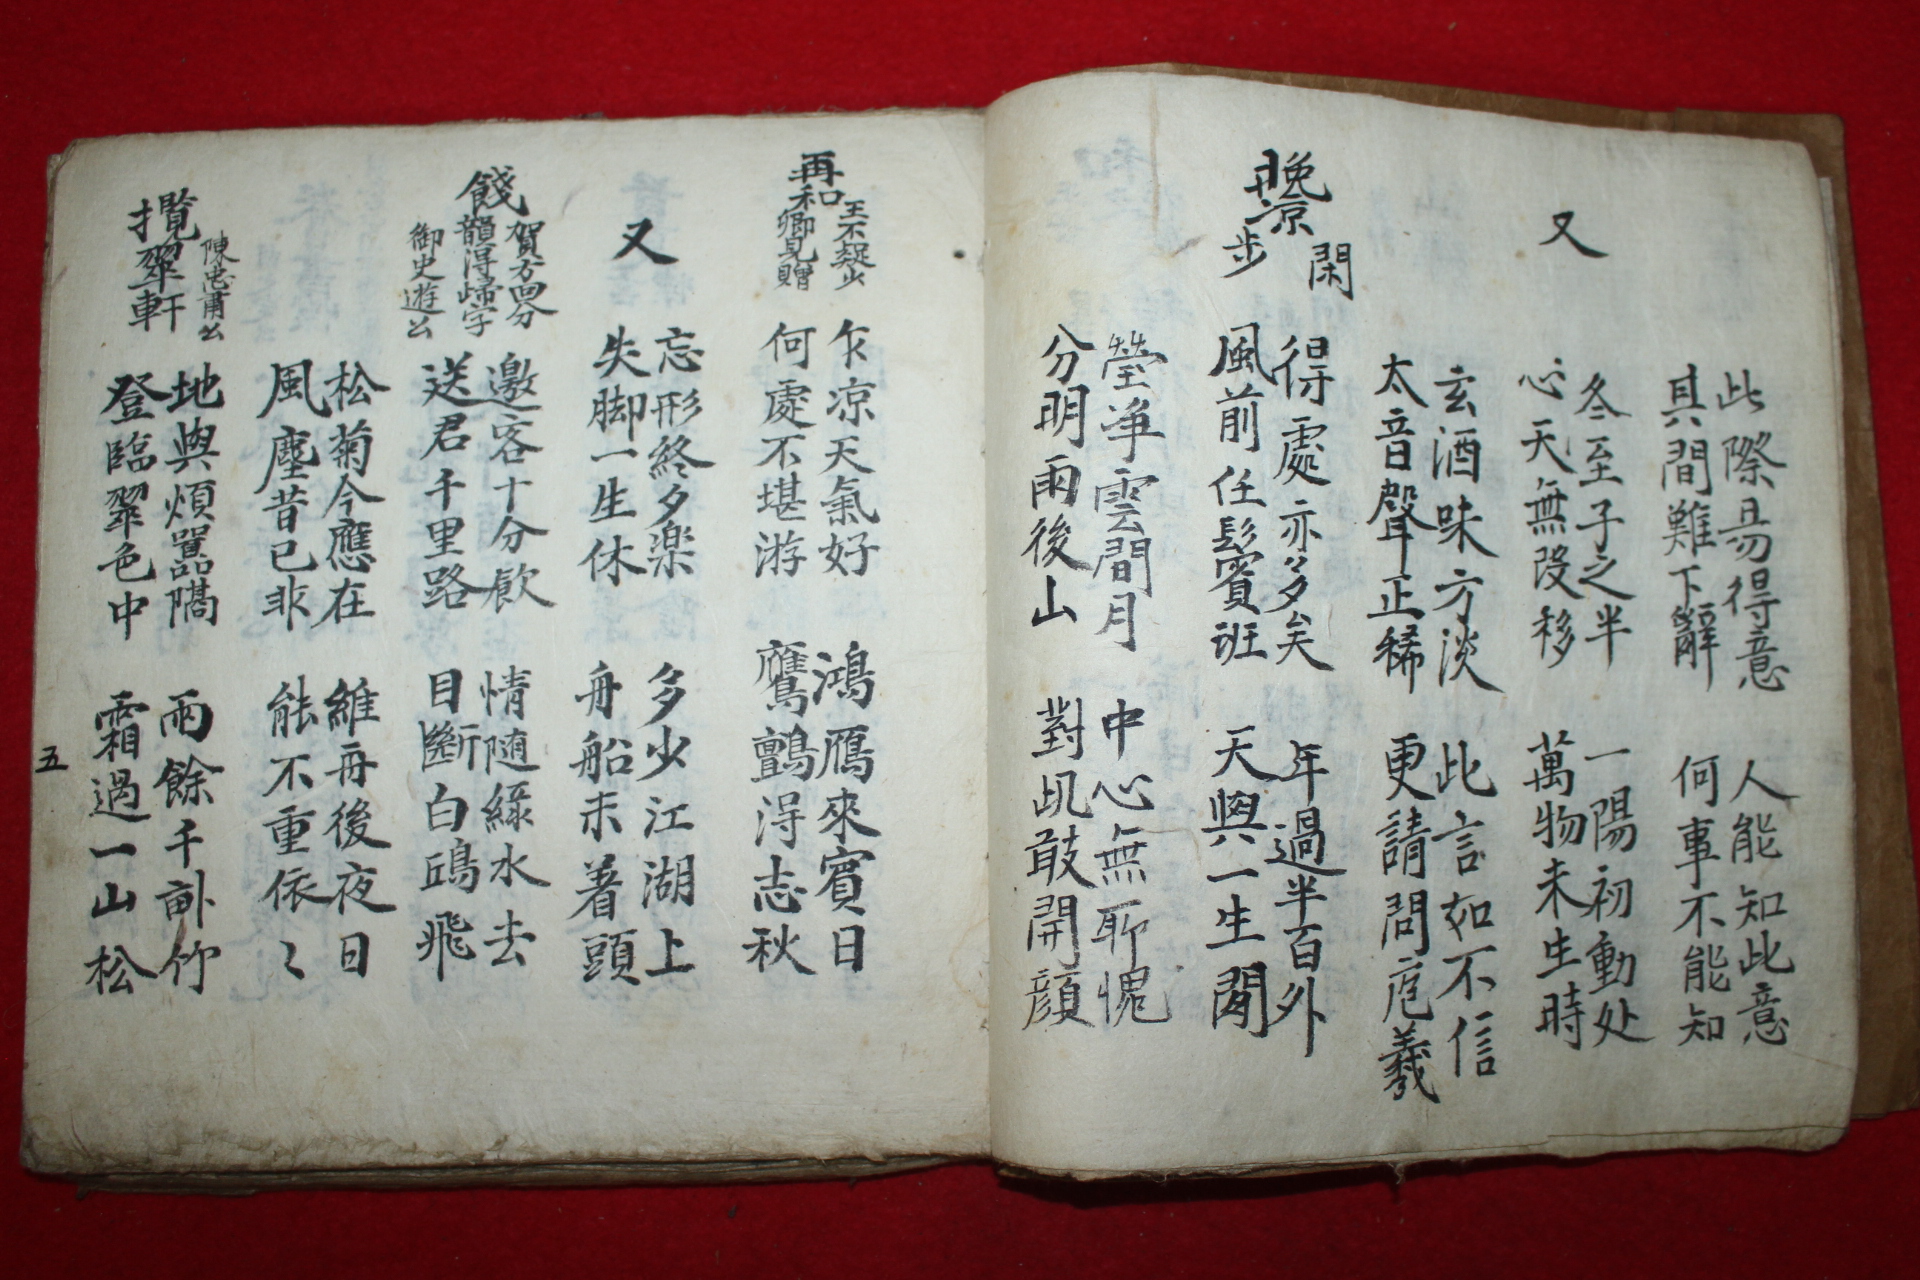 此際易得意　人能知此意
其間難下辭　何事不能知
又
冬至子之半　一陽初動处
心天無改移　萬物未生時
玄酒味方淡　此言如不信
太音聲正稀　更請問庖羲
晩景閑步
得處亦多矣　年過半百外
風前任鬂班　天與一生閑
瑩淨雲間月　中心無耶愧
分明雨後山　對此敢開顔
再和王不疑少卿見贈
乍凉天氣好　鴻鴈來賓日
何處不堪游　鷹鸇淂志秋
又
忘形終夕楽　多少江湖上
失脚一生休　舟船未着頭
餞賀方回分韻淂歸字
御史遊公
邀客十分飮　情随綠水去
送君千里路　目斷白鷗飛
松菊今應在　維舟後夜日
風塵昔已非　能不重依〻
攬翠軒 陳忠肅公
地與煩囂隔　雨餘千畝竹
登臨翠色中　霜過一山松
五